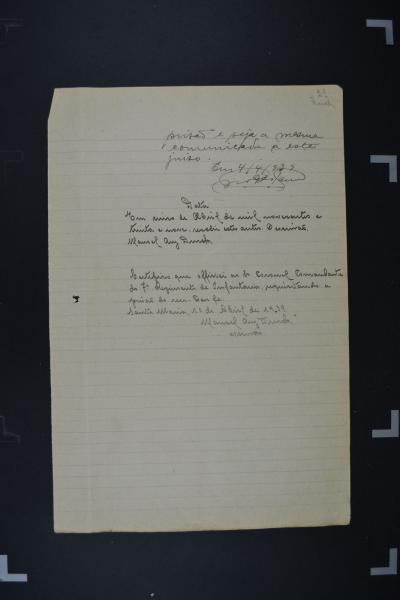 prisão e seja a mesma
communicada a este
juiso.
Em 4/4/939
Data
Em cinco de Abril de mil novecentos e
trinta e nove recebi estes autos. O escrivão
Manoel
Certifico que officiei ao Sr Coronel Comandante
do 7º Regimento de Infantaria, requisitando a
prisão do reu. Dou fé.
Santa Maria, de Abril de 1939
Manoel
escrivão